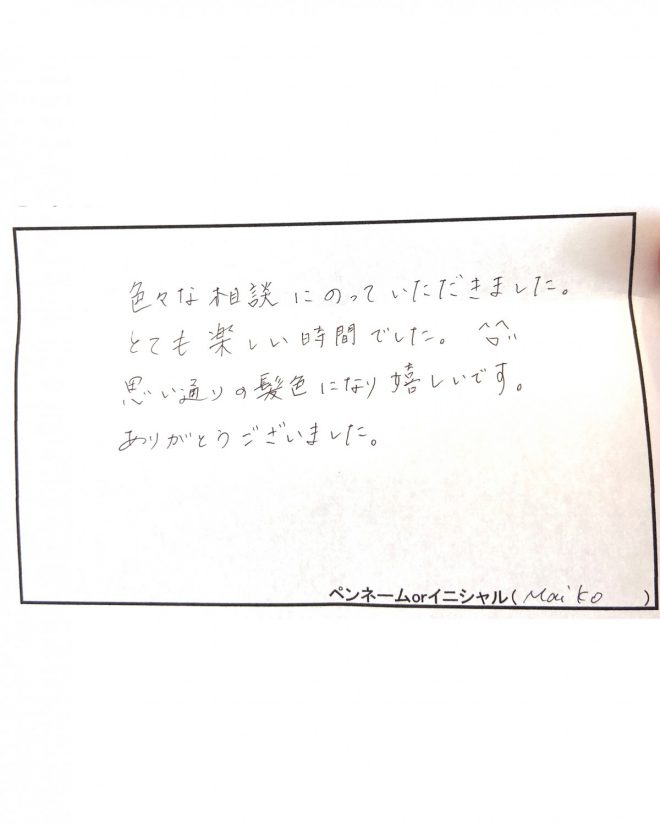 色々な相談にのっていただきました。
とても楽しい時間でした。^^
思い通りの髪色になり嬉しいです。
ありがとうございました。
ペンネームorイニシャル(Maiko)